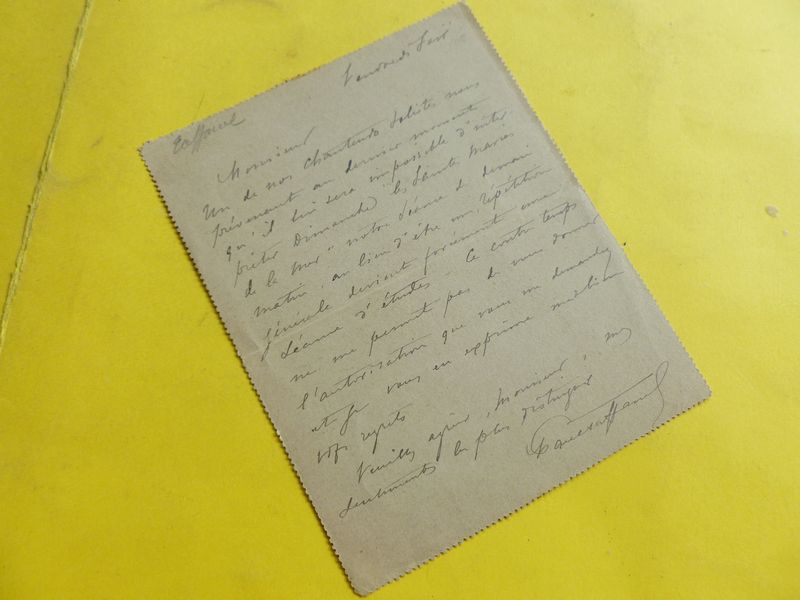 Taffanel
Vendredi soir
Monsieur
Un de nos chanteurs solistes nous
prévenant au dernier moment
qu'il lui sera impossible d'inter
préter Dimanche "les Saintes Maries
de la Mer" notre séance de demain
matin, au lieu d'être une répétition
générale devient forcément une
séance d'études - ce contre temps
ne me permet pas de vous donner
l'autorisation que vous me demandez
et je vous en exprime
vifs regrets
Veuillez agréer, Monsieur, mes
sentiments les plus distingués
Paul Taffanel